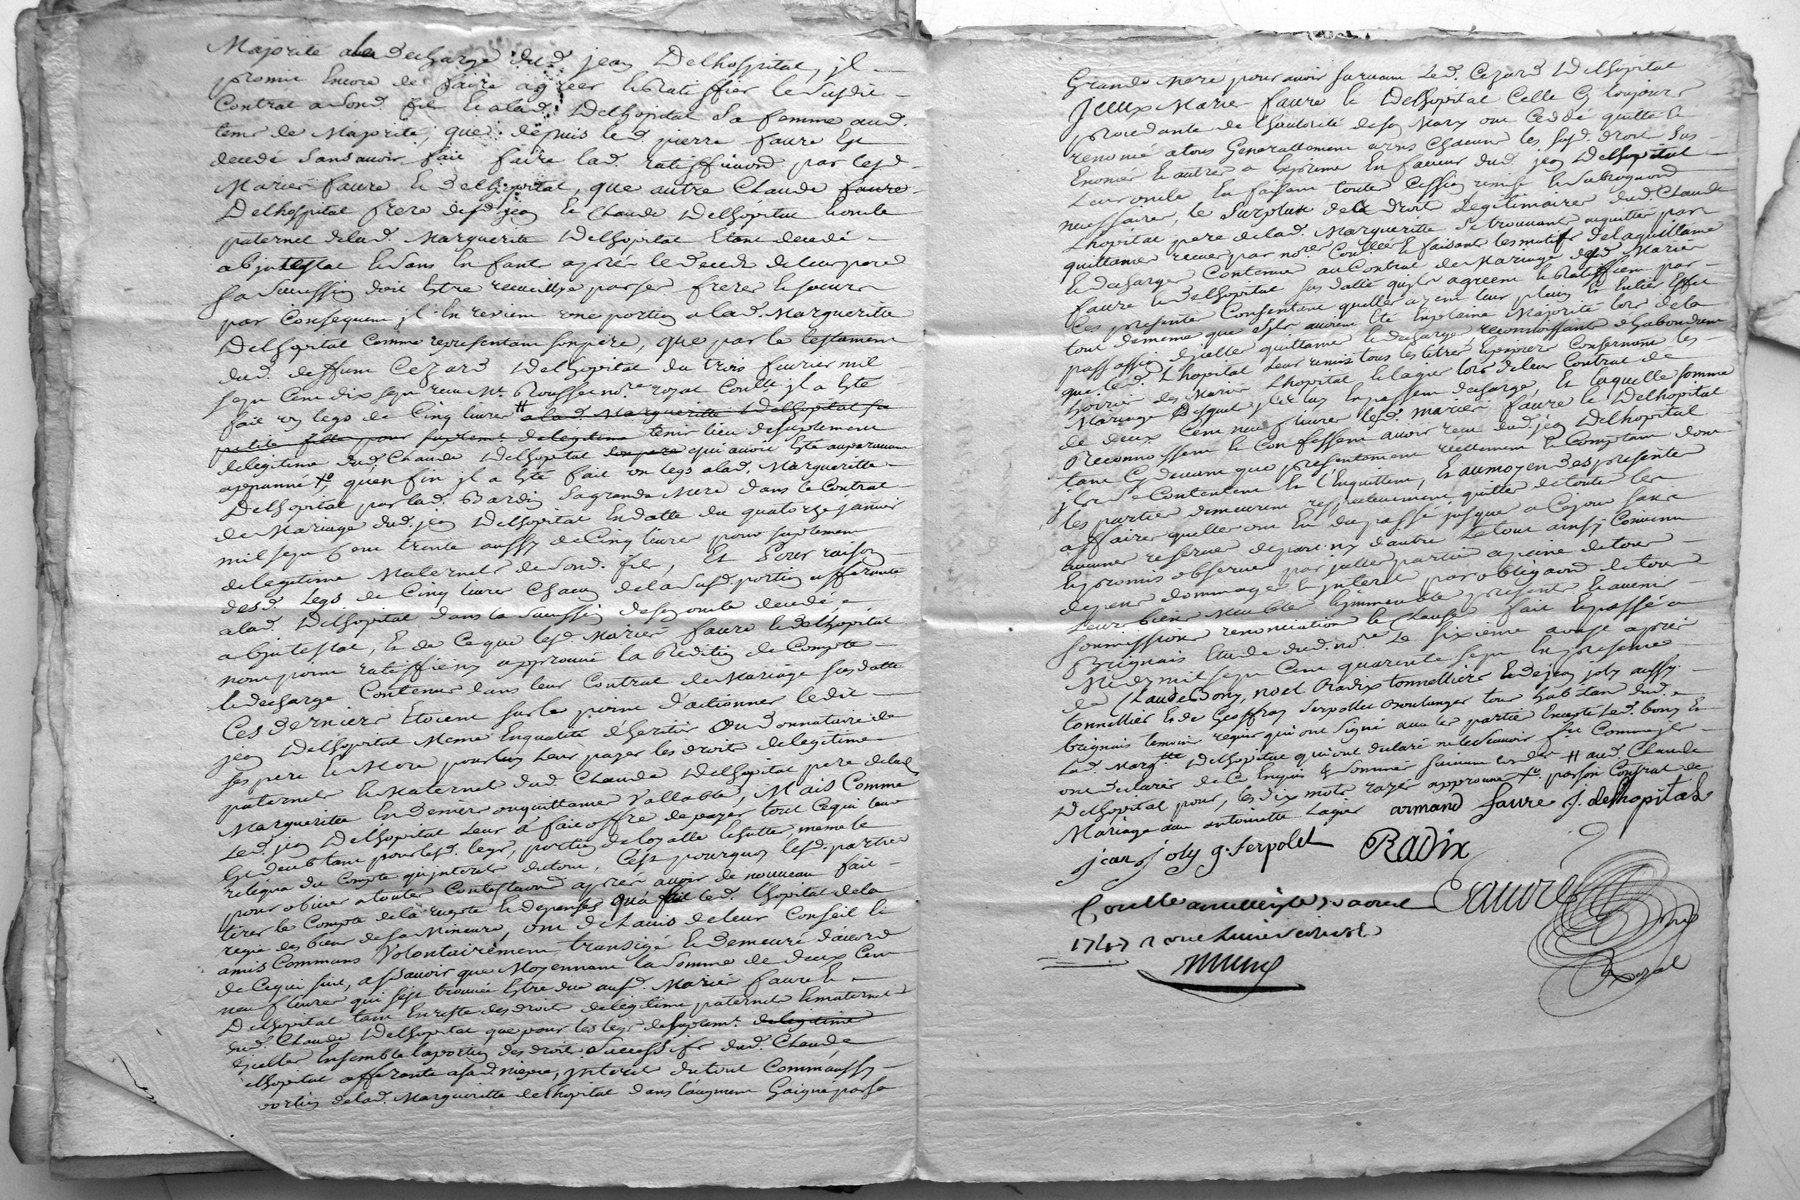 Majorité a la decharge dud. jean Delhospital, jl
promit encore de faire agreer et Ratiffier le susdit
Contrat a sond. fils et a lad. Delhospital sa femme aud.
tems de Majorité, que depuis led. pierre faure est
decedé sans avoir fait faire lad. ratiffication par lesd.
Mariés faure et Delhopital, que autre Claude faure
Delhospital frere desd. jean et Claude Delhopital et oncle
paternel delad. Margueritte Delhopital Etant decedé
abjntestat et sans Enfants aprés le deceds de leur pere
sa Succession doit Estre recueillye par ses freres et soeurs
par Consequent jl En revient une portion a lad. Margueritte
Delhopital comme representant son pere, que par le testament
dud. deffunt Cezard Delhopital du trois feuvrier mil
sept Cent dix sept receu Me. Rousset nore. royal jl a Esté
fait un legs de Cinq livres # a lad. Margueritte Delhopital sa
petite fille pour suplemt. de legitime tenir lieu de suplement
de legitime dud. Claude Delhopital son pere qui avoit Esté auparavant
appanné, qu'enfin jl a Esté fait un legs a lad. Margueritte
Delhopital par lad. Bardin sa grande Mere dans le Contrat
de Mariage dud. jean Delhopital En datte du quatorze janvier
mil sept Cent trente aussy de Cinq livres pour suplement
de legitime Maternels de sond. fils, Et Pour raison
desd. legs de Cinq livres Chacun de la susd. portion afferante
a lad. Delhopital dans la Succession de son oncle decedé
abjntestat, et de Ce que lesd. Mariés faure et Delhopital
n'ont point ratiffié ny approuvé la Reddition de Compte
et decharge Contenus dans leur Contrat de Mariage susdatté
Ces derniers Etoient sur le point d'actionner ledit
jean Delhopital Meme En qualité d'heritier ou donnataire de
ses pere et Mere pour luy leur payer les droits de legitime
paternels et Maternels dud. Claude Delhopital pere delad.
Margueritte En deniers ou quittance Vallable, Mais Comme
led. jean Delhopital leur a fait offre de payer tout Ce qui leur
Est deub tant pour lesd. legs, portion de loyalle et suitte, meme le
reliqua du Compte qu'jnterets du tout, C'est pourquoy lesd. parties
pour obvier a toute Contestation aprés avoir de nouveau fait
tirer le Compte de la recepte et depenses qu'a fait led. lhopital de la
regie des biens de sa Mineure, ont de l'avis de leur Conseil et
amis Communs Volontairement transigé et demeuré d'accord
de Ce qui suit, a scavoir que Moyennant la somme de deux Cent
neuf livres qui s'est trouvée Estre due ausd. Mariés faure et
Delhopital tant En reste des droits de legitime paternels et maternels
dud. Claude Delhopital que pour les legs de suplemt. de legitime
qu'elles Ensemble la portion des droits Successifs dud. Claude
lhopital afferante a sad. niepce, jnterets du tout Comm'aussy
portion delad. Margueritte delhopital dans l'augment Gaigné par sa
Grande Mere pour avoir survecu led. Cezard Delhopital
Jceux Mariés faure et Delhopital Celle Cy toujours
procedante de l'authorité de son Mary ont Cedé quitté et
renoncé a tous Generallement et uns Chacun les susd. droits sus
Enoncés et autres a Exprimer En faveur dud. jean Delhopital
leur oncle En faisant toutes Cession remise et Subrogation
necessaires, le surplus de la droits Legitimaires dud. Claude
Lhopital pere delad. Margueritte se trouvant acquittés par
quittance receue par nore. Conller. et faisant les motifs de la quittance
et decharge Contenue au Contrat de Mariage desd. Mariés
faure et Delhopital susdatté qu'jls agreent et Ratiffient par
Ces presentes Consentant qu'elles ayent leur plein Et Entier Effet
tout de meme que s'jls avoient Eté En plaine Majorité lors de la
passation d'jcelles quittance et decharge reconnoissant d'habondant
que led. Lhopital leur remis tous les titres papiers Concernant les
hoiries des Mariés Lhopital et lagier lors de leur Contrat de
Mariage Desquels jls luy En passent decharge, Et laquelle somme
de deux Cent neuf livres lesd. mariés faure et Delhopital
Reconnoissent et Confessent avoir receu dud. jean Delhopital
tant Cy devant que presentement reellement et Comptant dont
jls se Contentent Et l'En quittent, Et au moyen des presentes
les parties demeurent respectivement quittes de toutes les
affaires qu'elles ont Eu du passé jusque a Ce jour sans
aucune reserve de part ny d'autre le tout ainsy Convenu
et promis observer par jcelles parties a peine de tous
depens dommages et jnterets par obligation de tous
leurs biens Meubles et jmmeubles presents et avenir
soumissions renonciation et Clauses fait et passé a
Brignais Etude dud. nore. Le sixieme avril aprés
Midy mil sept Cent quarente sept En presence
de Claude Bony, noel Radix tonnelliers et de jean joly aussy
tonnellier Et de Geoffray Serpollet boulanger tous habitans dud.
brignais temoins requis qui ont signé avec les parties Excepté led. bony Et
lad. Margtte. Delhopital qui ont declaré ne le scavoir
ont declaré de Ce Enquis Et sommés suivant l'ordce # aud. Claude
Delhopital pour, les dix mots rayés approuvé par son Contrat de
Mariage avec antoinette Lagier armand faure J. delhopital
jean joly g. serpolet Radix
Faure
nore
Royal
Conllé a 
1747